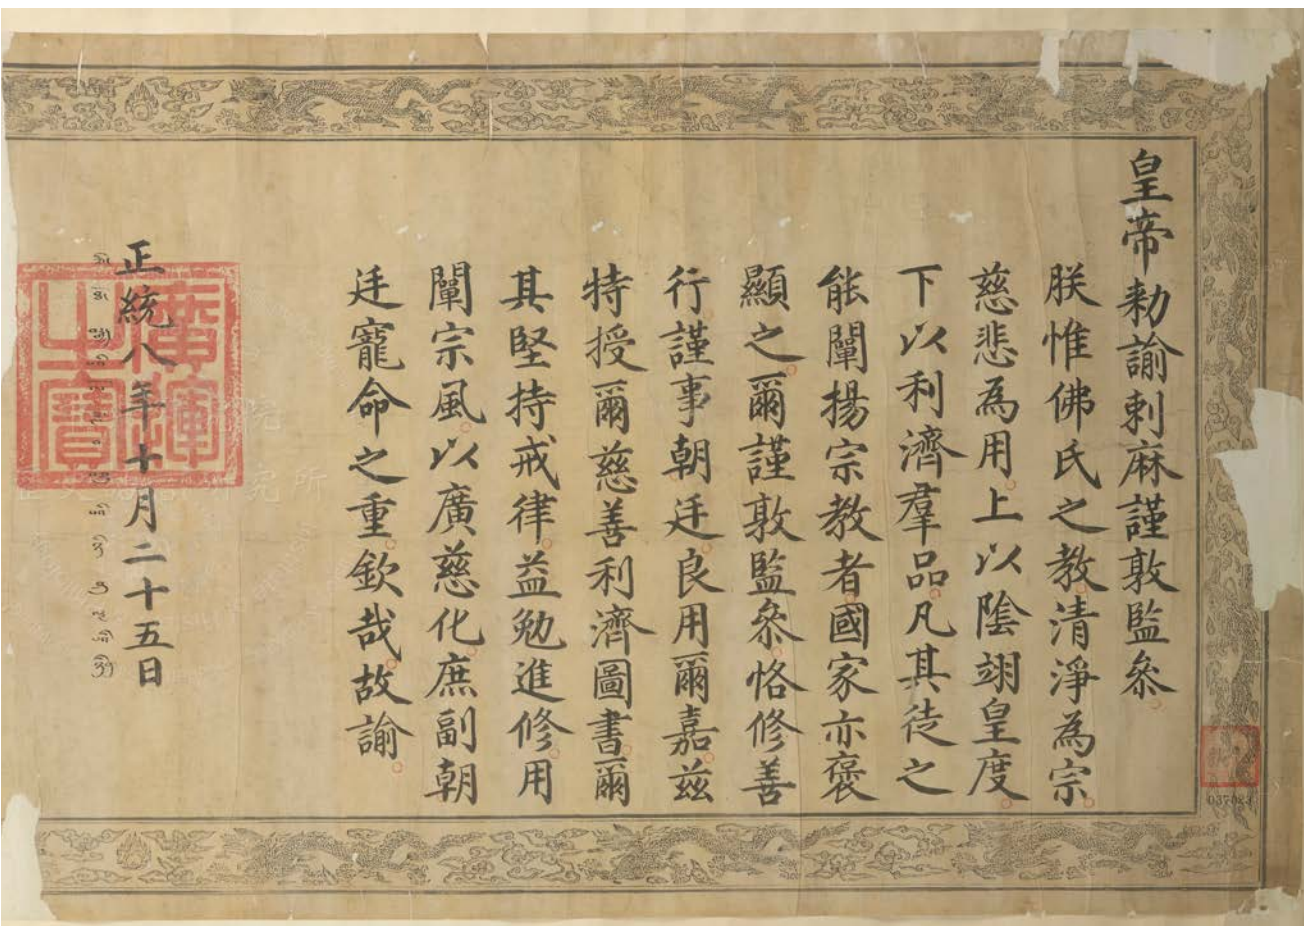 皇帝勑諭剌麻謹敦監叅
朕惟佛氏之教清淨為宗
慈悲為用上以陰翊皇度
下以利濟羣品凡其徒之
能闡揚宗教者國家亦褒
顯之爾謹敦監叅恪修善
行謹事朝廷良用爾嘉茲
特授爾慈善利濟圖書爾
其堅持戒律益勉進修用
闡宗風以廣慈化庶副朝
廷寵命之重欽哉故諭
正統八年十月二十五日
廣運之寶